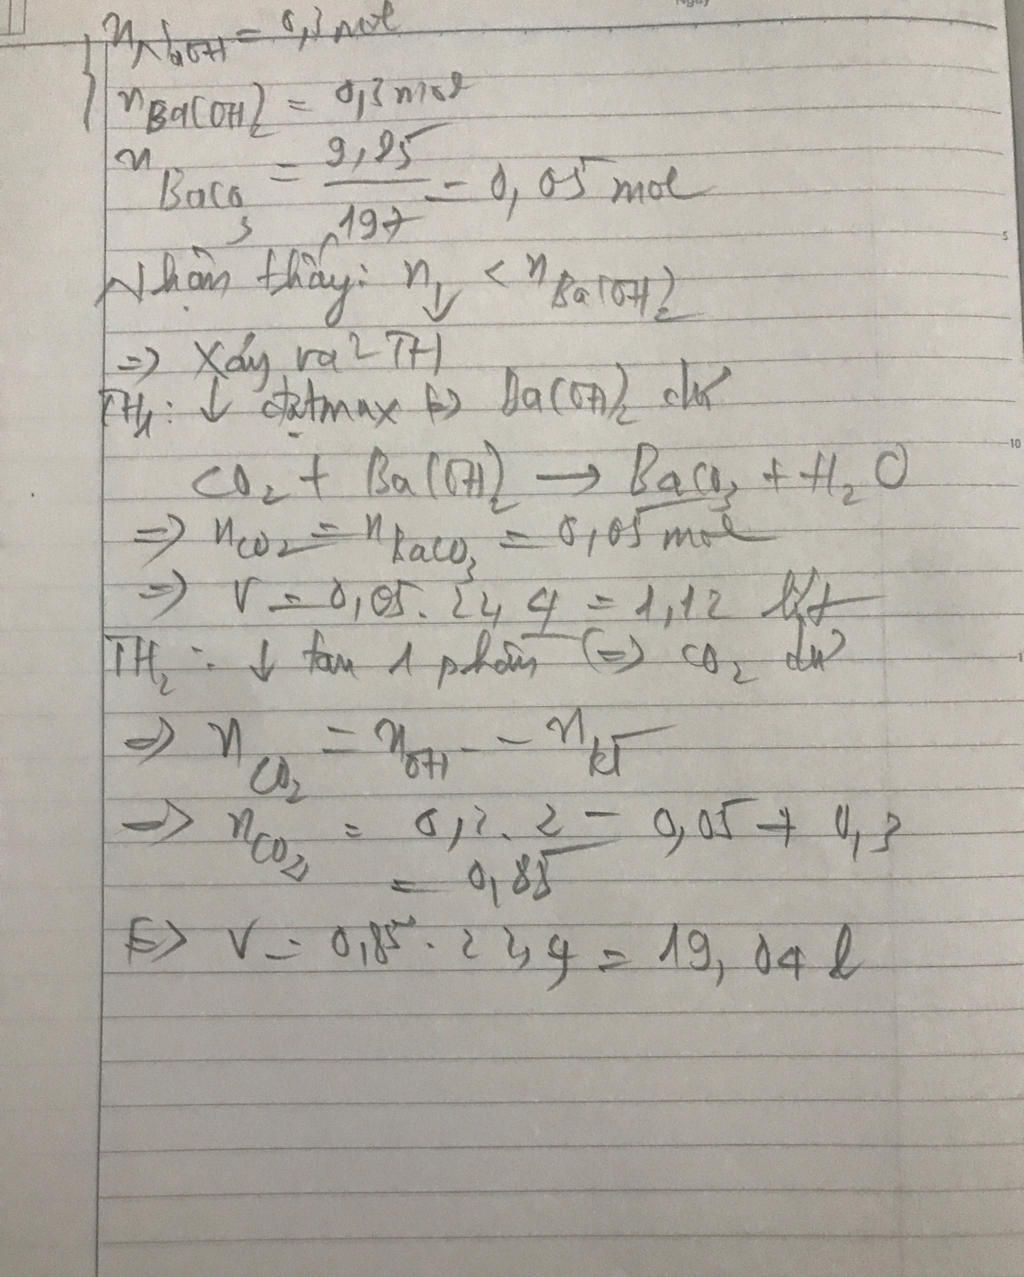 n NaOH = 0,3 mol
n Ba(OH)2 = 0,3 mol
n BaCO3 = 9,85 / 197 = 0,05 mol
Nhận thấy: n↓ < n Ba(OH)2
=> Xảy ra 2 TH
TH1: ↓ đạt max <=> Ba(OH)2 dư
CO2 + Ba(OH)2 → BaCO3 + H2O
=> nCO2 = n BaCO3 = 0,05 mol
=> V = 0,05. 22,4 = 1,12 lít
TH2: ↓ tan 1 phần <=> CO2 dư
=> n CO2 = n OH- - n kt
=> n CO2 = 0,3. 2 - 0,05 + 0,3
= 0,85
<=> V = 0,85. 22,4 = 19,04 l